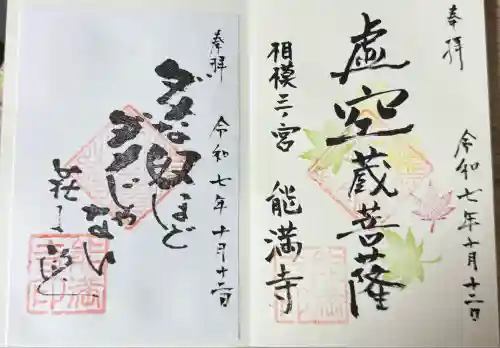 奉拝
虚空蔵菩薩
相模三ノ宮 能満寺
令和七年十月十二日
奉拝
令和七年十月十二日
ほど
じゃ
ない